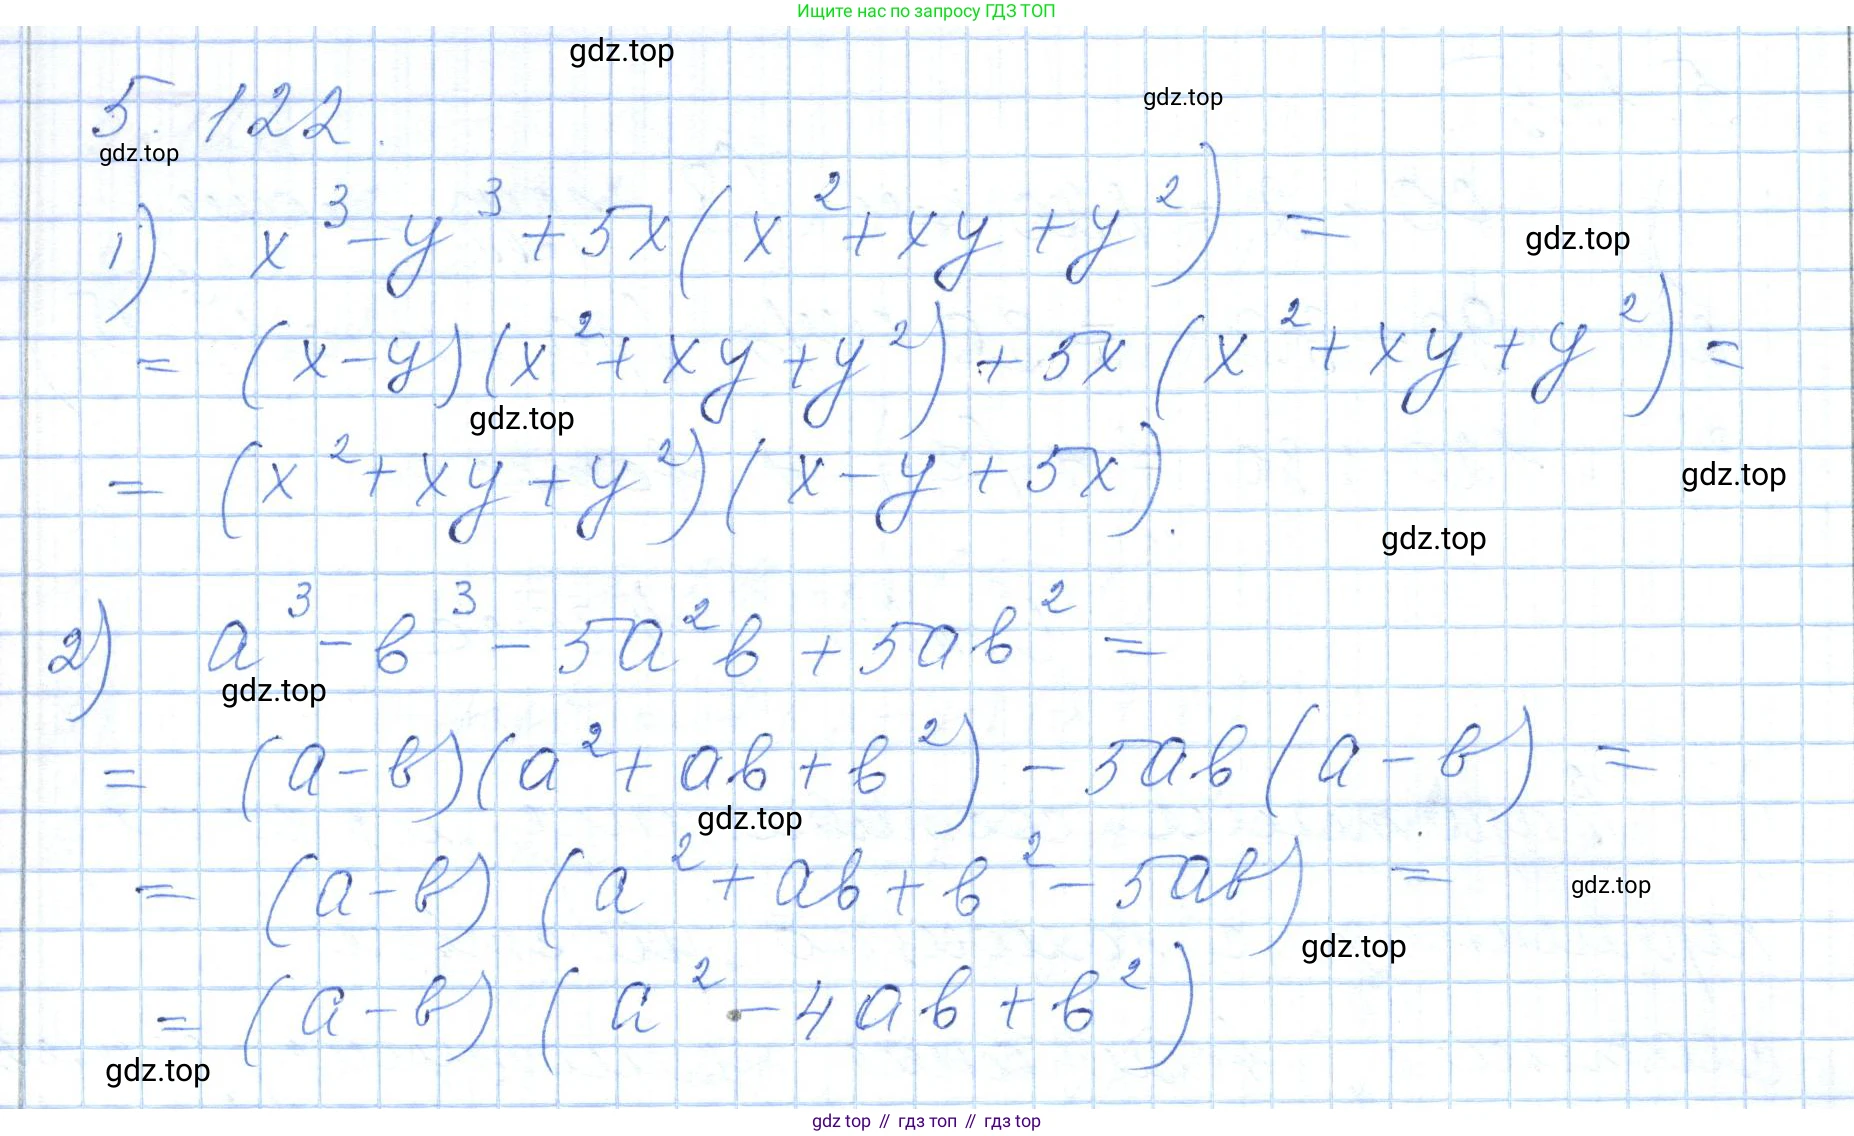 Ищите нас по запросу ГДЗ ТОП
gdz.top
5.122.
gdz.top
gdz.top
1) x³ - y³ + 5x(x² + xy + y²) =
gdz.top
= (x - y)(x² + xy + y²) + 5x(x² + xy + y²) =
gdz.top
= (x² + xy + y²)(x - y + 5x).
gdz.top
gdz.top
2) a³ - b³ - 5a²b + 5ab² =
gdz.top
= (a - b)(a² + ab + b²) - 5ab(a - b) =
gdz.top
= (a - b)(a² + ab + b² - 5ab) =
gdz.top
gdz.top
= (a - b)(a² - 4ab + b²)
gdz.top
gdz top // гдз топ // гдз top